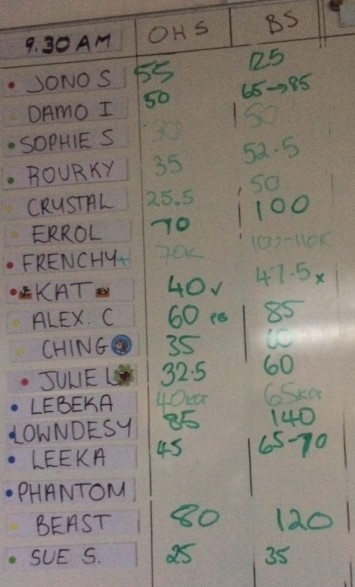 9.30 AM OHS BS
JONO S 55 125
DAMO I 50 65→85
SOPHIE S 30 50
ROURKY 35 52.5
CRYSTAL 25.5 50
ERROL 70 100
FRENCHY 70K
KAT 40✓ 47.5 x
ALEX. C 60 PB 85
CHING 35
JULIE L 32.5 60
LEBEKA 40KG 65KG
LOWNDESY 85 140
LEEKA 45 65-70
PHANTOM
BEAST 80 120
SUE S. 25 35